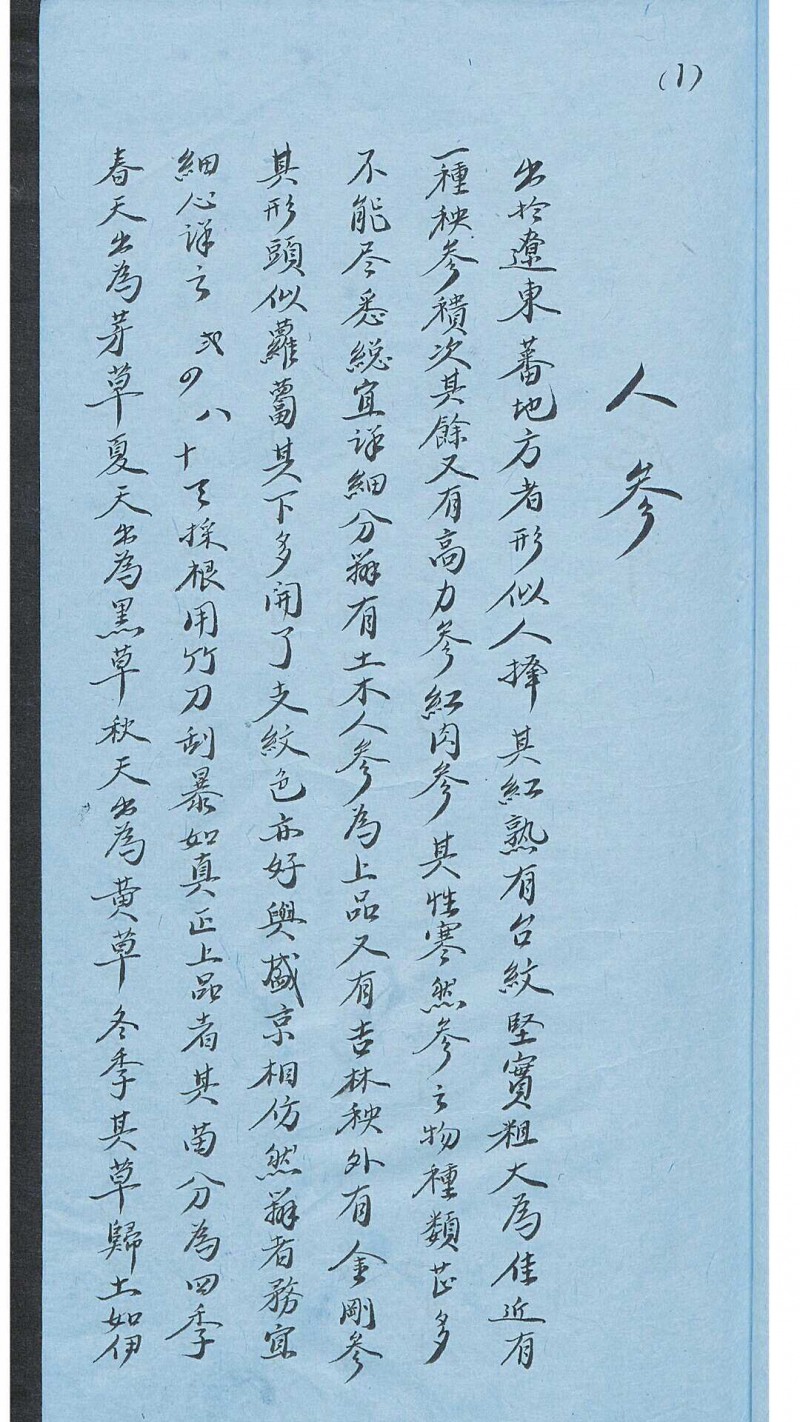 (1)
人參
出於遼東蕃地方者形似人擇其紅熟有台紋堅實粗大為佳近有
一種秧參積次其餘又有高力參紅肉參其性寒然參之物種類甚多
不能尽悉総宜詳細分辦有土木人參為上品又有吉林秧外有金剛參
其形頭似蘿蔔其下多開了支紋色亦好與盛京相仿然辦者務宜
細心詳之 弍四八十天採根用竹刀刮暴如真正上品者其苗分為四季
春天出為芽草夏天出為黑草秋天出為黄草冬季其草歸土如伊